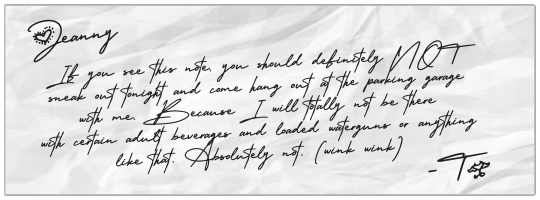 Jeanny
If you see this note, you should definitely NOT
sneak out tonight and come hang out at the parking garage
with me. Because I will totally not be there
with certain adult beverages and loaded waterguns or anything
like that. Absolutely not. (wink wink)
-T